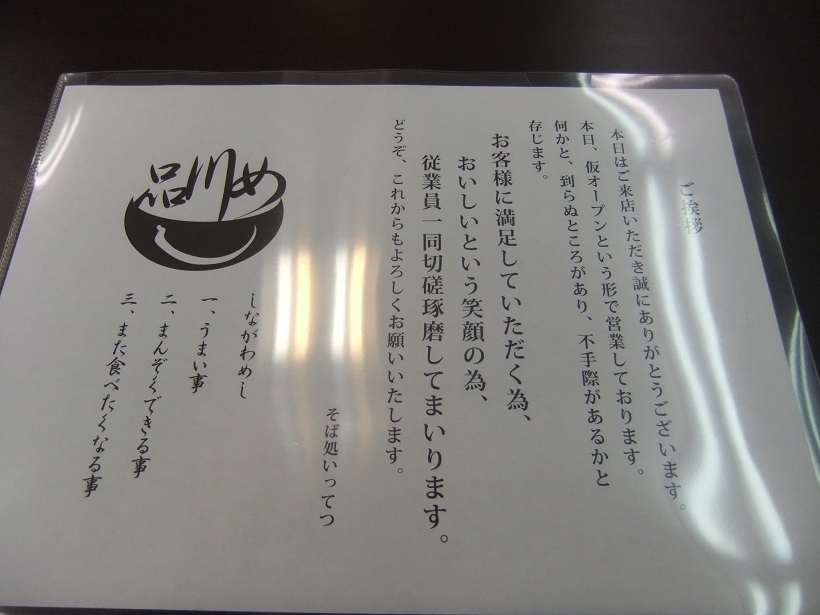 ご挨拶
本日はご来店いただき誠にありがとうございます。
本日、仮オープンという形で営業しております。
何かと、到らぬところがあり、不手際があるかと
存じます。
お客様に満足していただく為、
おいしいという笑顔の為、
従業員一同切磋琢磨してまいります。
どうぞ、これからもよろしくお願いいたします。
そば処いってつ
しながわめし
一、うまい事
二、まんぞくできる事
三、また食べたくなる事
品川め